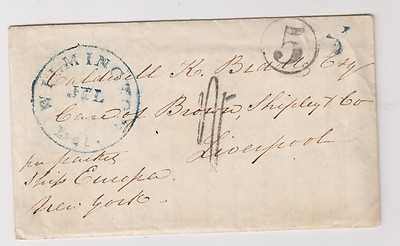 WILMINGTON
JUL
Del.
5
5
Caldwell K. Biddle Esq
Care of Brown, Shipley & Co
Liverpool
per packet
Ship Europa
New York.